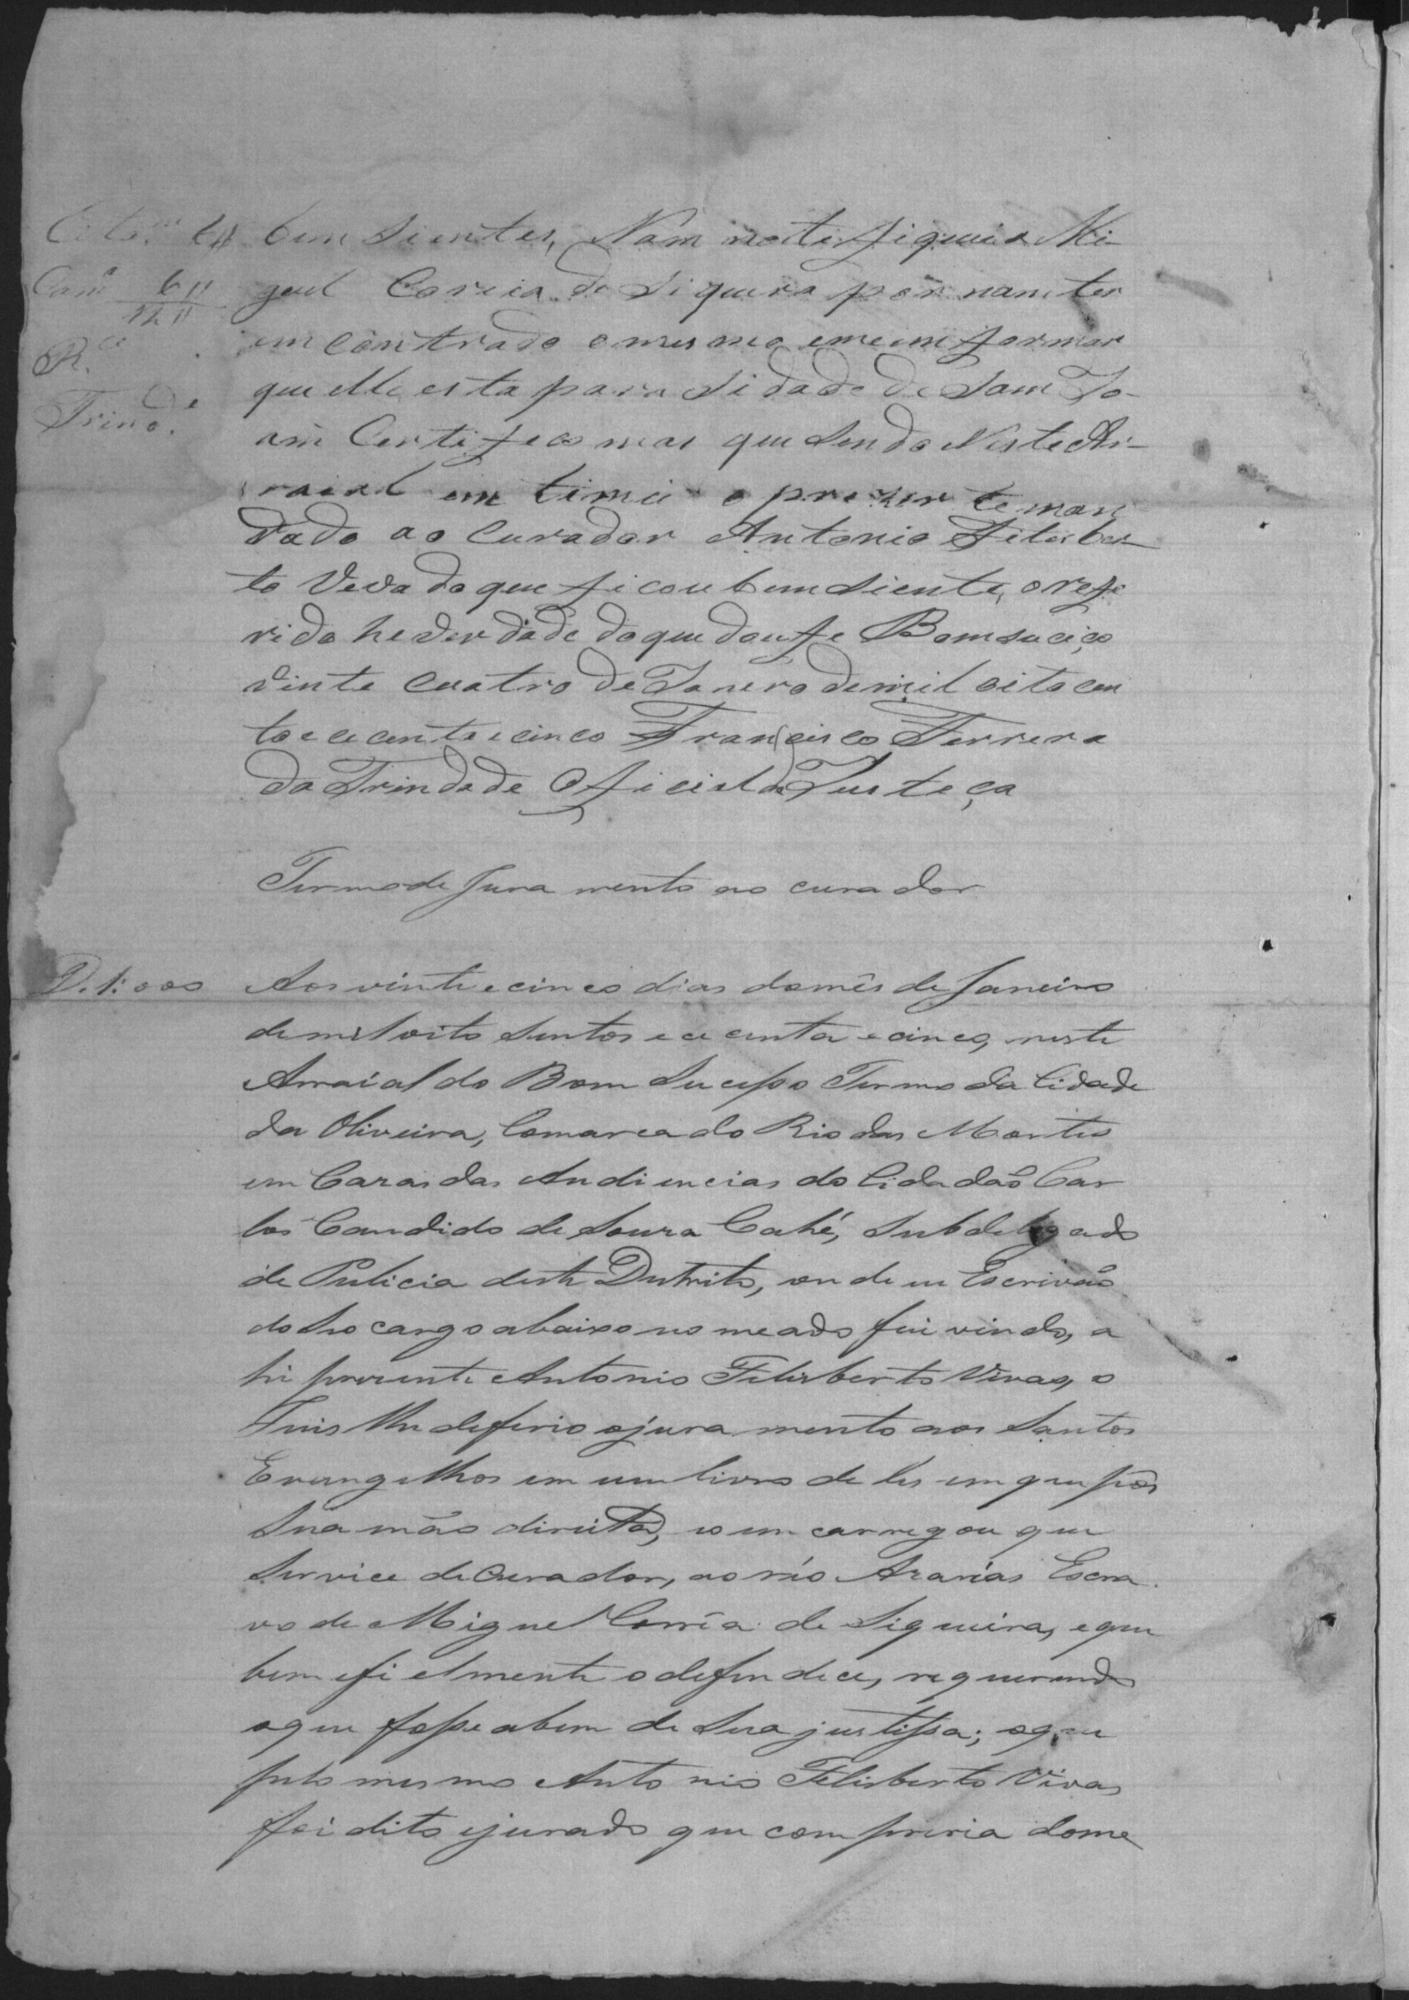 bem sientes, Nam notefiquei a Mi-
guel Correia de Siquera por nam ter
emcontrado o mesmo eme emformar
que elle esta para Sidade de Sam Jo-
am Certefeco mas que sendo Neste Ar-
raial em timei o prezente man
dado ao Curador Antonio Filisber-
to Veva do que ficou bem siente, o refe
rido he verdade do que dou fe Bomsuceço
vinte cuatro de Janero de mil oito cen
tos e cecenta e cinco Francisco Ferrera
da Trindade Oficial da Justeça
R.ce
Trind.e
Termo de Jura mento ao curador
D. 1:000
Aos vinte e cinco dias do mês de Janeiro
de mil oito sentos e cecenta e cinco, neste
Arraial do Bom Sucesso Termo da Cidade
da Oliveira, Comarca do Rio das Mortes
em Cazas das Audiencias do Cidadão Car
los Candido de Souza Cahé, Subdelegado
de Pulicia deste Destrito, onde eu Escrivão
do Seo cargo abaixo no meado fui vindo, a
hi prezente Antonio Felisberto Vivas, o
Juis lhe deferio o jura mento aos Santos
Evangelhos em um livro de les em que pôs
Sua mão direita, e o em carregou que
Service de Curador, ao réo Azarias Escra
vo de Miguel Corrêa de Siqueira, e que
bem e fi elmente o defendece, requerendo
o que fosse abem de Sua justissa; o que
pelo mesmo Anto nio Felisberto Vivas
foi dito e jurado que com priria dome